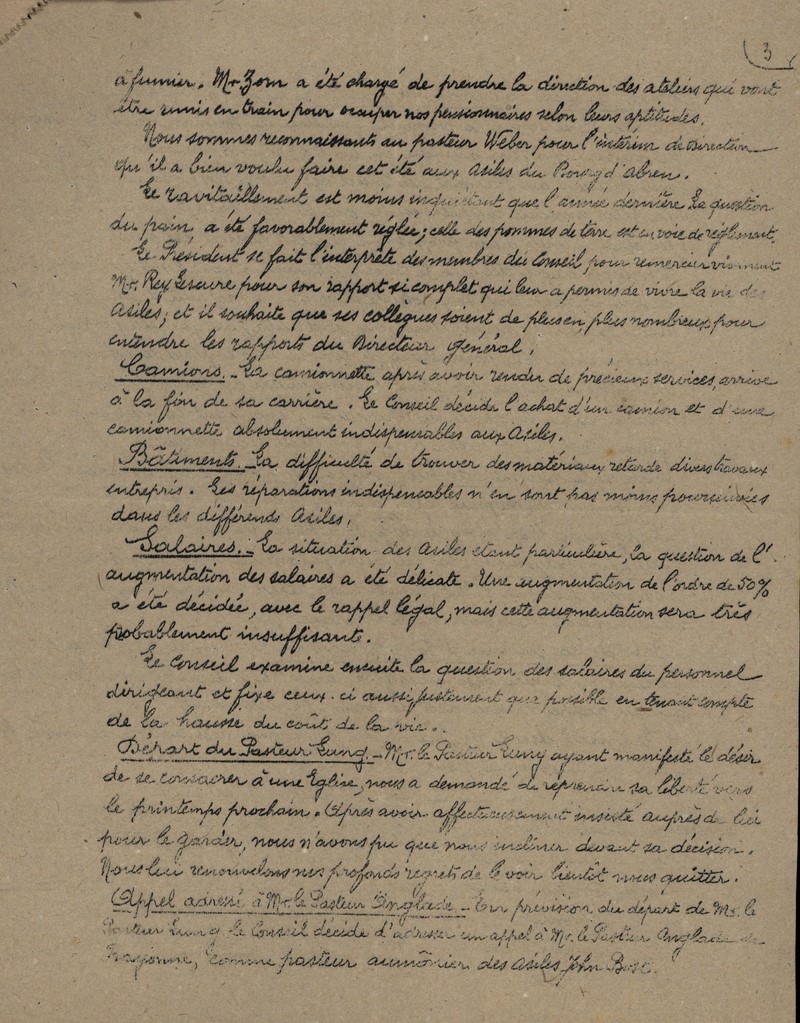 3
à fumier. Mr. Zorn a été chargé de prendre la direction des ateliers qui vont
être remis en train pour occuper nos pensionnaires selon leurs aptitudes.
Nous sommes reconnaissants au pasteur Weber pour l'intérim de Direction
qu'il a bien voulu faire cet été aux Asiles du Bourg d'Abren.
Le ravitaillement est moins inquiétant que l'année dernière La question
du pain a été favorablement réglée; celle des pommes de terre est en voie de règlement.
Le Président se fait l'interprète des membres du Conseil pour remercier vivement
Mr. Rey Lescure pour son rapport si complet qui leur a permis de vivre la vie des
Asiles; et il souhaite que ses collègues soient de plus en plus nombreux pour
entendre les rapports du Directeur général.
Camions. - La camionnette après avoir rendu de précieux services, arrive
à la fin de sa carrière. Le Conseil décide l'achat d'un camion et d'une
camionnette absolument indispensables aux Asiles.
Bâtiments. La difficulté de trouver des matériaux retarde divers travaux
entrepris. Les réparations indispensables n'en sont pas moins poursuivies
dans les différents Asiles.
Salaires. - La situation des Asiles étant particulière, la question de l'
augmentation des salaires a été délicate. Une augmentation de l'ordre de 50%
a été décidée, avec le rappel légal, mais cette augmentation sera très
probablement insuffisante.
Le Conseil examine ensuite la question des salaires du personnel
dirigeant et fixe ceux-ci aussi justement que possible en tenant compte
de la hausse du coût de la vie.
Départ du Pasteur Lung. - Mr. le Pasteur Lung ayant manifesté le désir
de se consacrer à une Eglise, nous a demandé de reprendre sa liberté vers
le printemps prochain. Après avoir affectueusement insisté auprès de lui
pour le garder, nous n'avons pu que nous incliner devant sa décision.
Nous lui renouvelons nos profonds regrets de le voir bientôt nous quitter.
Appel adressé à Mr. le Pasteur Anglade. - En prévision du départ de Mr. le
Pasteur Lung le Conseil décide d'adresser un appel à Mr. le Pasteur Anglade de
Bayonne, comme pasteur aumônier des Asiles John Bost.